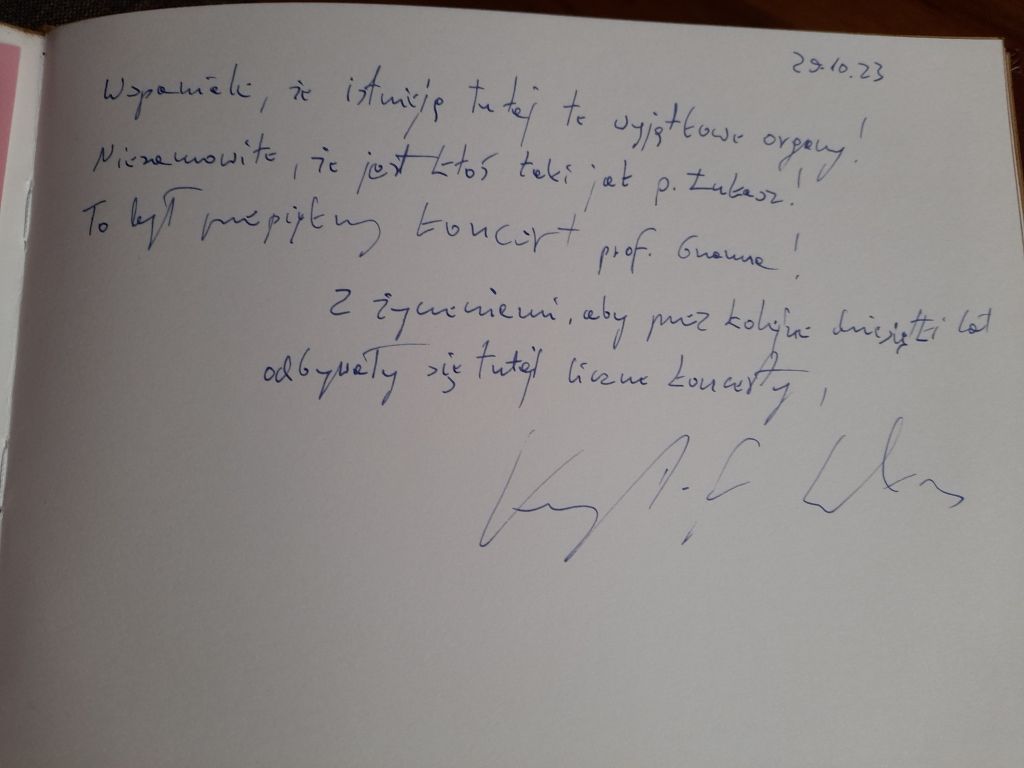 29.10.23
Wspaniale, że istnieją tutaj te wyjątkowe organy!
Niesamowite, że jest ktoś taki jak p. Łukasz!
To był przepiękny koncert prof. Gnanna!
Z życzeniami, aby przez kolejne dziesiątki lat
odbywały się tutaj liczne koncerty,